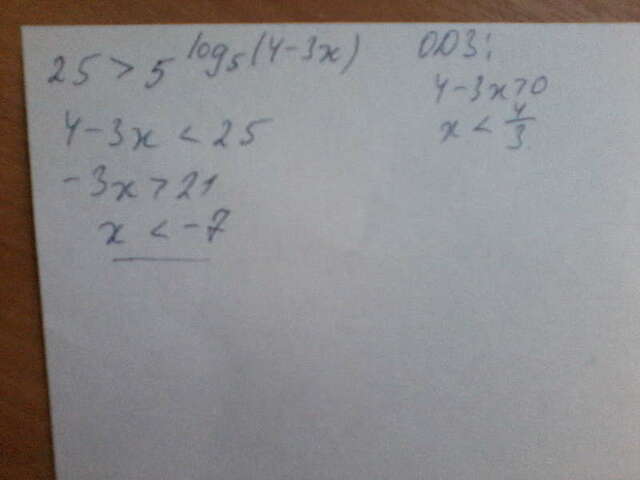 25 > 5^log₅(4-3x)
4-3x < 25
-3x > 21
x < -7
ОДЗ:
4-3x>0
x < 4/3